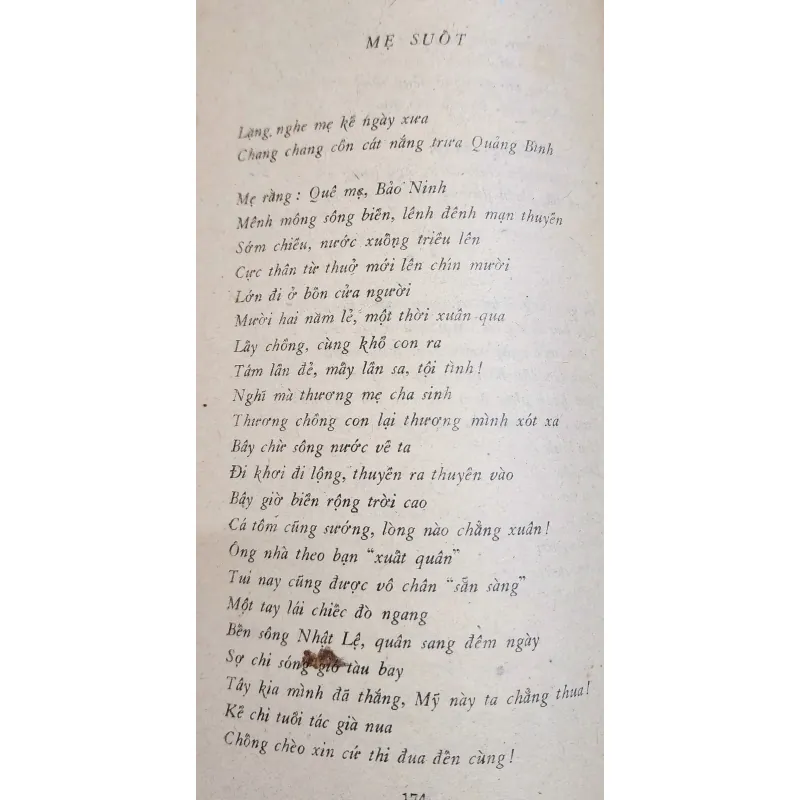 MẸ SUỐT
Lặng nghe mẹ kể ngày xưa
Chang chang cồn cát nắng trưa Quảng Bình
Mẹ rằng : Quê mẹ, Bảo Ninh
Mênh mông sông biển, lênh đênh mạn thuyền
Sớm chiều, nước xuống triều lên
Cực thân từ thuở mới lên chín mười
Lớn đi ở bốn cửa người
Mười hai năm lẻ, một thời xuân qua
Lấy chồng, cũng khổ con ra
Tám lần đẻ, mấy lần sa, tội tình !
Nghĩ mà thương mẹ cha sinh
Thương chồng con lại thương mình xót xa
Bây chừ sông nước về ta
Đi khơi đi lộng, thuyền ra thuyền vào
Bây giờ biển rộng trời cao
Cá tôm cũng sướng, lòng nào chẳng xuân !
Ông nhà theo bạn “xuất quân”
Tui nay cũng được vô chân “sẵn sàng”
Một tay lái chiếc đò ngang
Bến sông Nhật Lệ, quân sang đêm ngày
Sợ chi sóng gió tàu bay
Tây kia mình đã thắng, Mỹ này ta chẳng thua !
Kể chi tuổi tác già nua
Chống chèo xin cứ thi đua đến cùng !
174